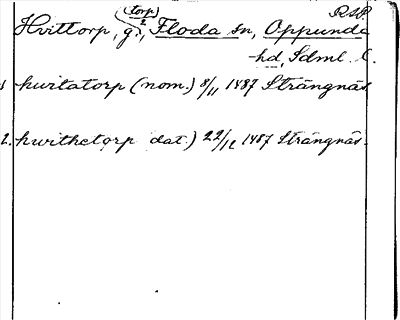 (torp) RSP
Hvittorp, g., Floda sn, Oppunda
hd, Sdml. C.
1 hwitatorp (nom.) 8/11 1487 Strängnäs
2. hwithetorp dat.) 22/12 1487 Strängnäs.